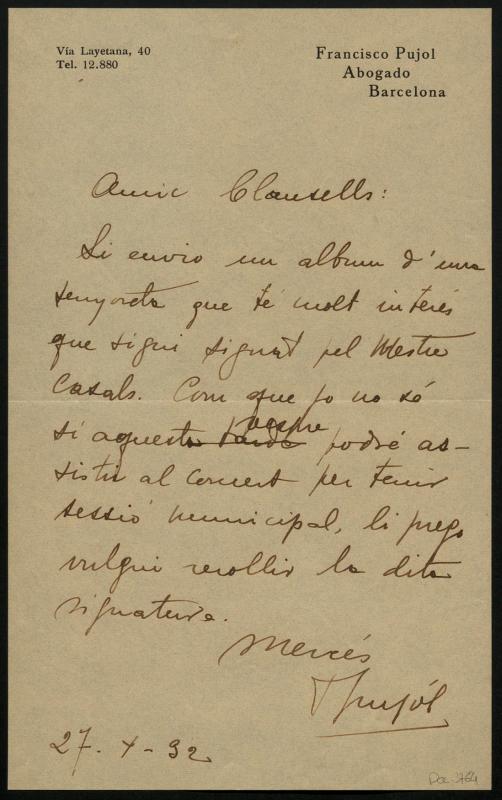 Vía Layetana, 40
Tel. 12.880
Francisco Pujol
Abogado
Barcelona
Amic Clausells:
Li envio un album d'una
senyoreta que té molt interés
que sigui signat pel Mestre
Casals. Com que jo no sé
si aquesta tarde vespre podré as-
sistir al concert per tenir
sessió municipal, li prego
vulgui recollir la dita
signatura.
Mercés
F Pujól
27-X-32
Doc. 3764